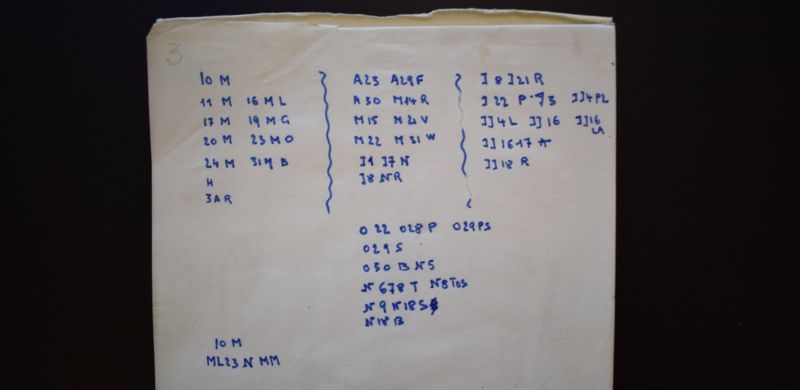 3
10 M
11 M 16 M L
17 M 19 M G
20 M 23 M O
24 M 31 M B
H
3 A R
A23 A29F
A 30 M14 R
M15 M21V
M22 M31 W
J1 J7 N
J8 N R
J 8 J21 R
J 22 P 73 JJ4PL
JJ4L JJ16 JJ16 LA
JJ16-17 A
JJ18 R
O 22 O28 P O29PS
O29 S
O30 B N5
N 678 T N8TOS
N 9 N18S
N18B
10 M
ML23 N MM